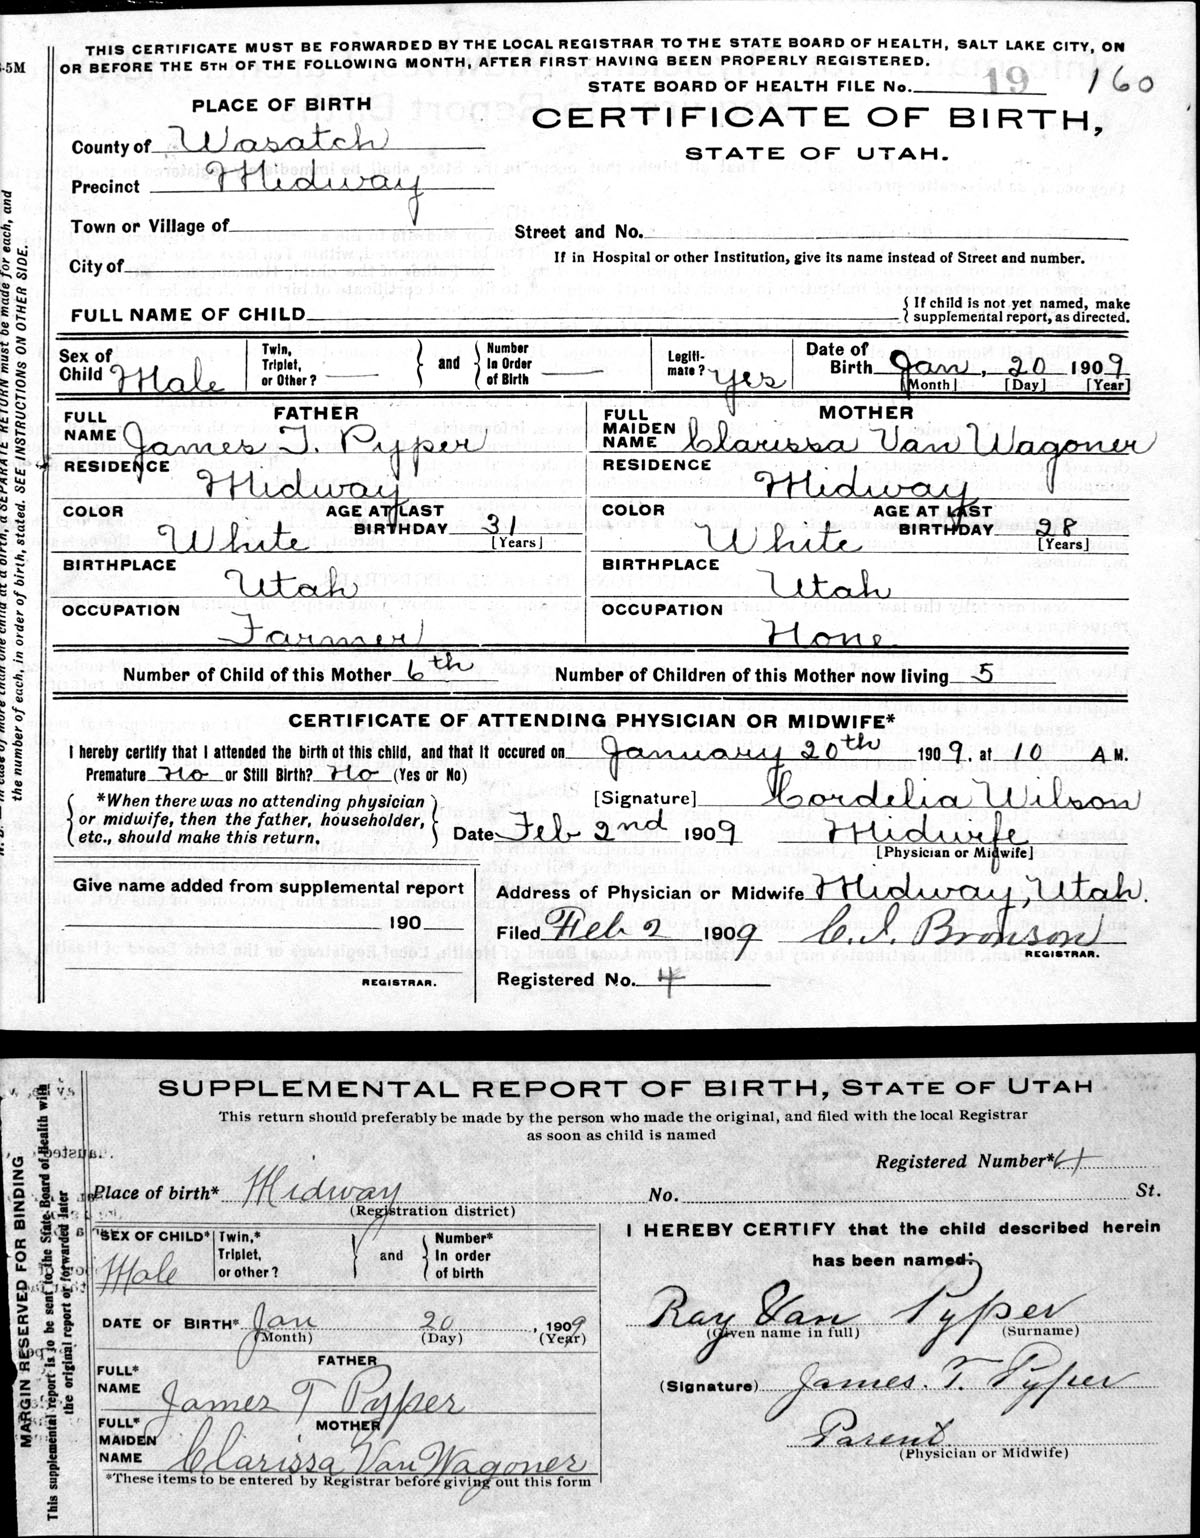 THIS CERTIFICATE MUST BE FORWARDED BY THE LOCAL REGISTRAR TO THE STATE BOARD OF HEALTH, SALT LAKE CITY, ON
OR BEFORE THE 5TH OF THE FOLLOWING MONTH, AFTER FIRST HAVING BEEN PROPERLY REGISTERED.
5M
STATE BOARD OF HEALTH FILE No. 19 160
PLACE OF BIRTH
CERTIFICATE OF BIRTH,
STATE OF UTAH.
County of Wasatch
Precinct Midway
Town or Village of
Street and No.
City of
If in Hospital or other Institution, give its name instead of Street and number.
FULL NAME OF CHILD
{ If child is not yet named, make
supplemental report, as directed.
Sex of Child Male
Twin, Triplet, or Other?
} and {
Number In Order of Birth
Legiti-mate? Yes
Date of Birth Jan, 20 1909
[Month] [Day] [Year]
FATHER
FULL NAME James T. Pyper
MOTHER
FULL MAIDEN NAME Clarissa Van Wagoner
RESIDENCE Midway
RESIDENCE Midway
COLOR White
AGE AT LAST BIRTHDAY 31 [Years]
COLOR White
AGE AT LAST BIRTHDAY 28 [Years]
BIRTHPLACE Utah
BIRTHPLACE Utah
OCCUPATION Farmer
OCCUPATION None
Number of Child of this Mother 6th
Number of Children of this Mother now living 5
CERTIFICATE OF ATTENDING PHYSICIAN OR MIDWIFE*
I hereby certify that I attended the birth of this child, and that it occured on January 20th 1909, at 10 A M.
Premature No or Still Birth? No (Yes or No)
{ *When there was no attending physician
or midwife, then the father, householder,
etc., should make this return. }
[Signature] Cordelia Wilson
Date Feb 2nd 1909 Midwife
[Physician or Midwife]
Give name added from supplemental report
190
REGISTRAR.
Address of Physician or Midwife Midway, Utah.
Filed Feb 2 1909 C. I. Bronson
REGISTRAR.
Registered No. 4
In case of more than one child at a birth, a SEPARATE RETURN must be made for each, and
the number of each, in order of birth, stated. SEE INSTRUCTIONS ON OTHER SIDE.
SUPPLEMENTAL REPORT OF BIRTH, STATE OF UTAH
This return should preferably be made by the person who made the original, and filed with the local Registrar
as soon as child is named
Registered Number* 4
Place of birth* Midway No. St.
(Registration district)
SEX OF CHILD* Male
Twin,* Triplet, or other?
} and {
Number* In order of birth
I HEREBY CERTIFY that the child described herein
has been named:
DATE OF BIRTH* Jan 20, 1909
(Month) (Day) (Year)
Ray Van Pyper
(Given name in full) (Surname)
FATHER
FULL* NAME James T Pyper
(Signature) James. T. Pyper
MOTHER
FULL* MAIDEN NAME Clarissa Van Wagoner
Parent
(Physician or Midwife)
*These items to be entered by Registrar before giving out this form
MARGIN RESERVED FOR BINDING
This supplemental report is to be sent to the State Board of Health with
the original report or forwarded later